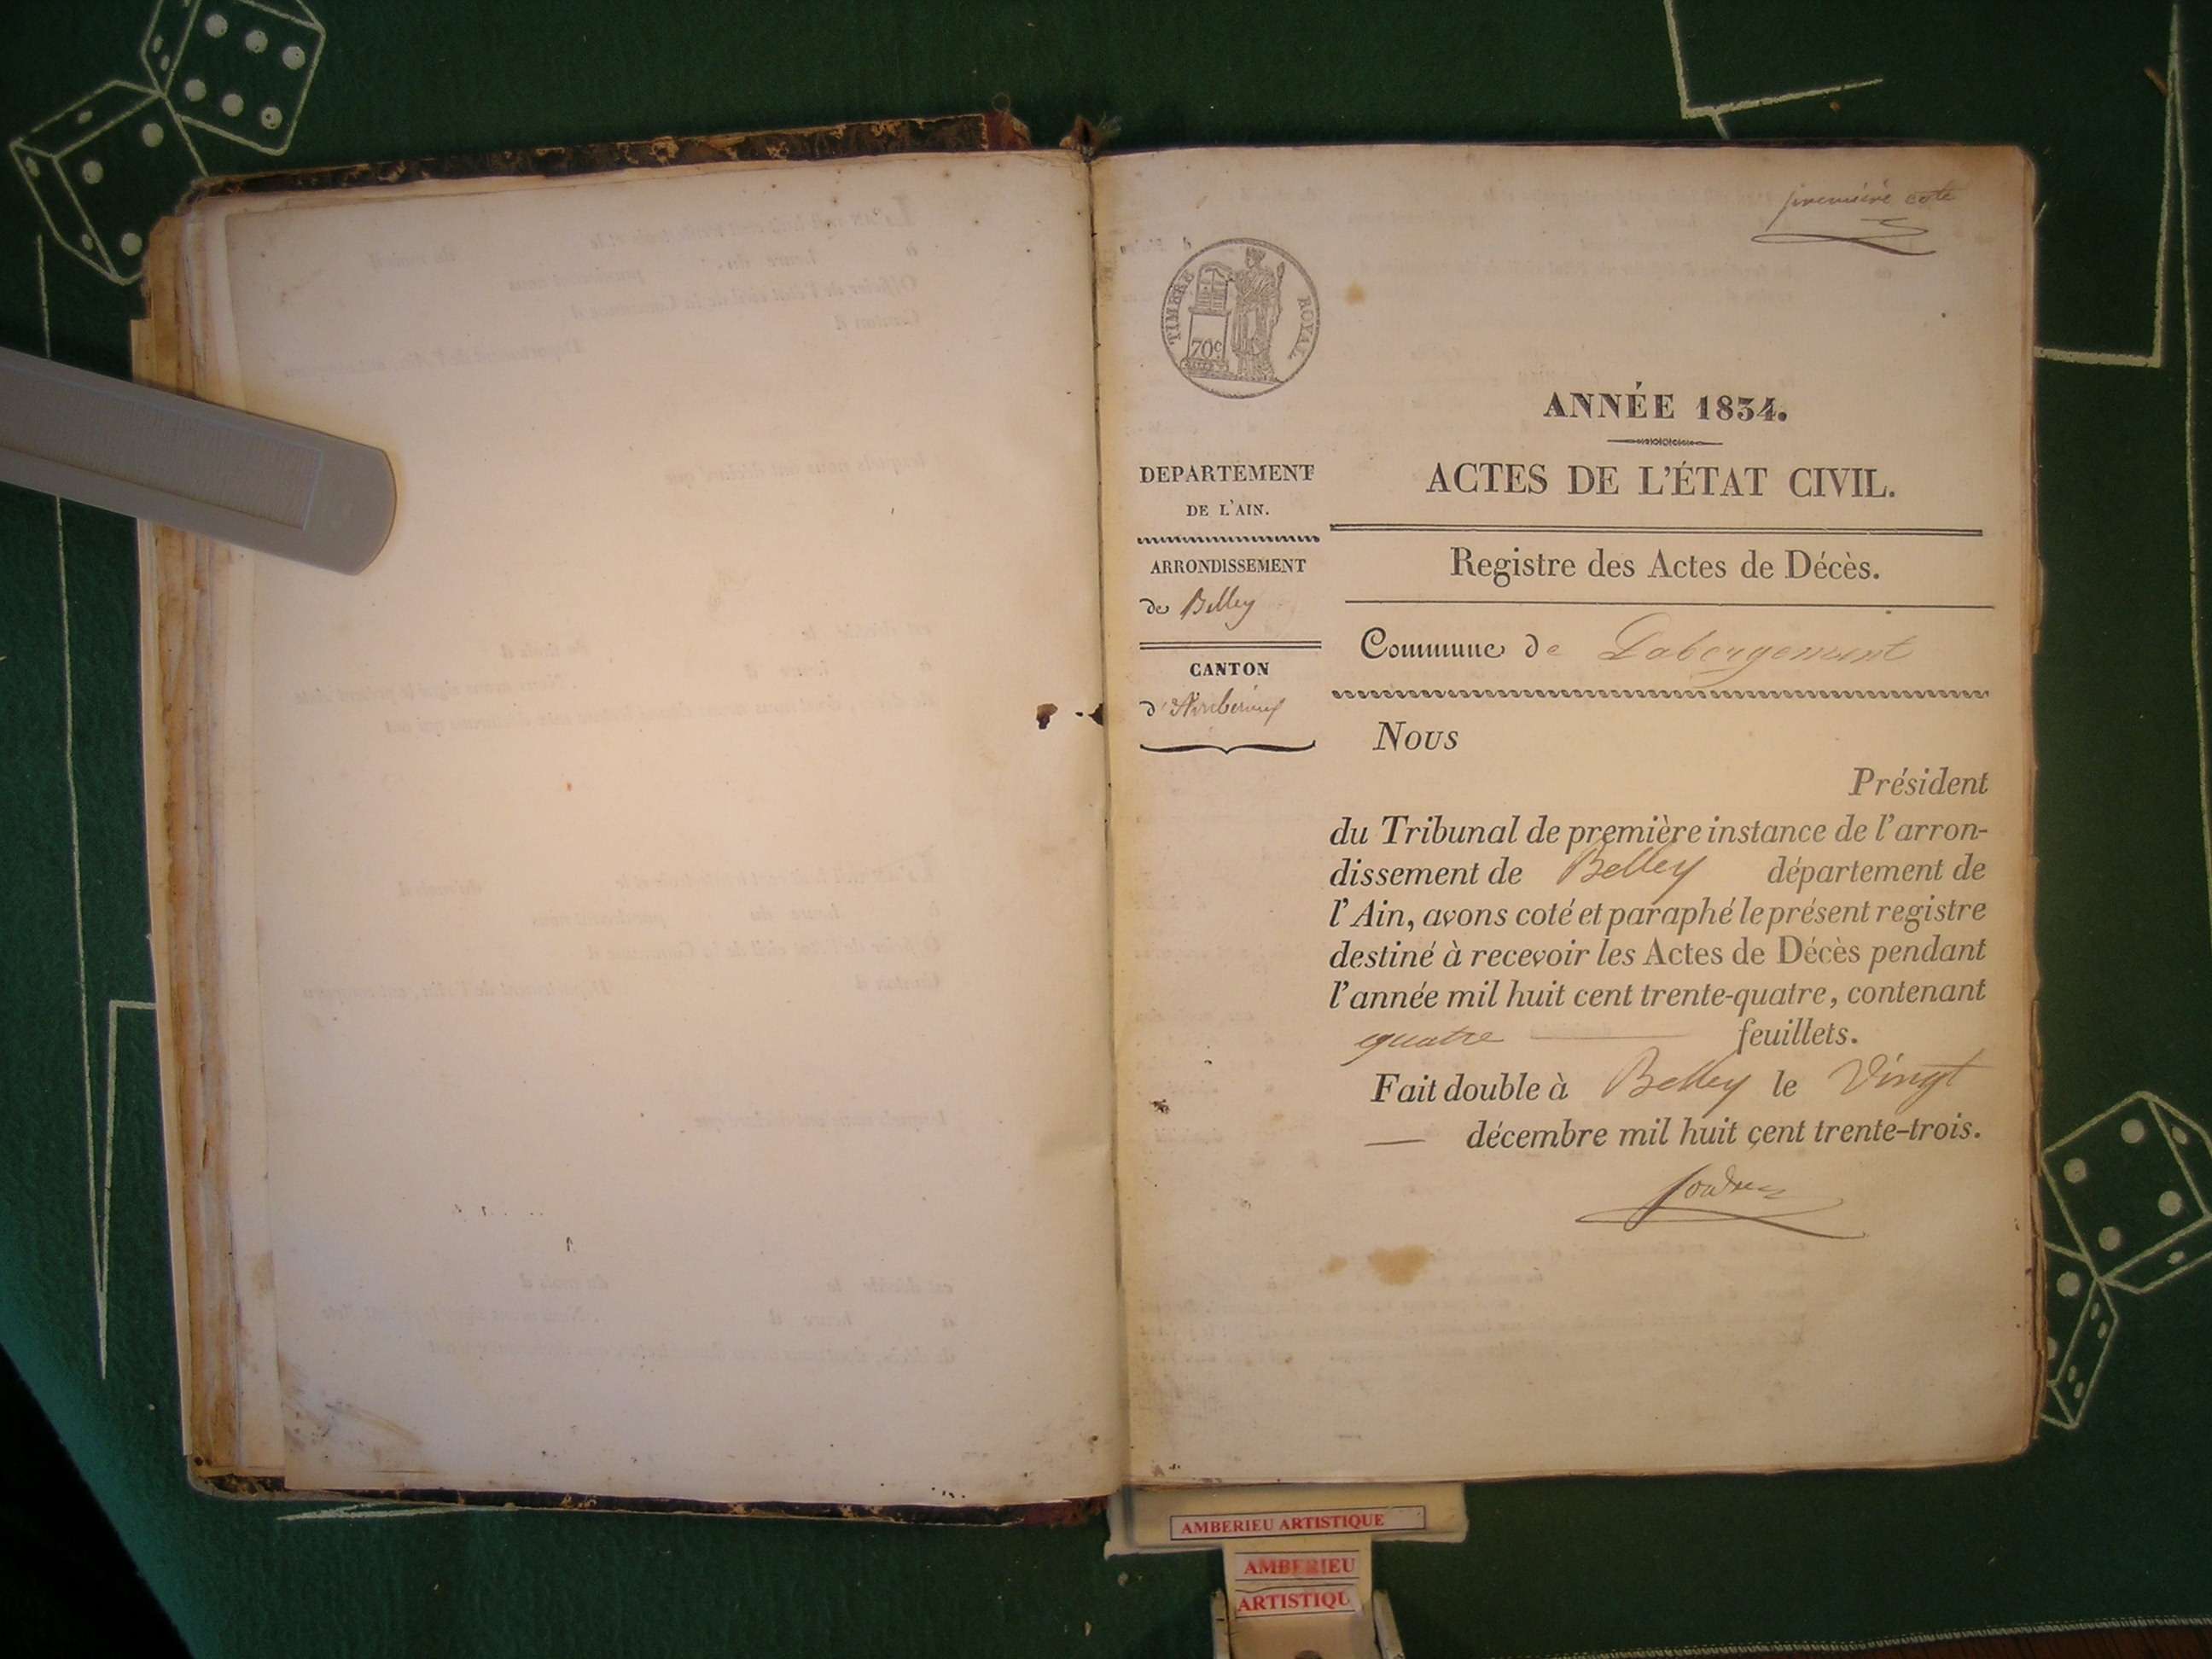 première cote
TIMBRE ROYAL
70c
ANNÉE 1834.
ACTES DE L'ÉTAT CIVIL.
DEPARTEMENT
DE L'AIN.
ARRONDISSEMENT
de Belley
CANTON
d'Ambérieux
Registre des Actes de Décès.
Commune de Labergement
Nous
Président
du Tribunal de première instance de l'arron-
dissement de Belley département de
l'Ain, avons coté et paraphé le présent registre
destiné à recevoir les Actes de Décès pendant
l'année mil huit cent trente-quatre, contenant
quatre feuillets.
Fait double à Belley le Vingt
— décembre mil huit cent trente-trois.
AMBERIEU ARTISTIQUE
AMBERIEU
ARTISTIQU